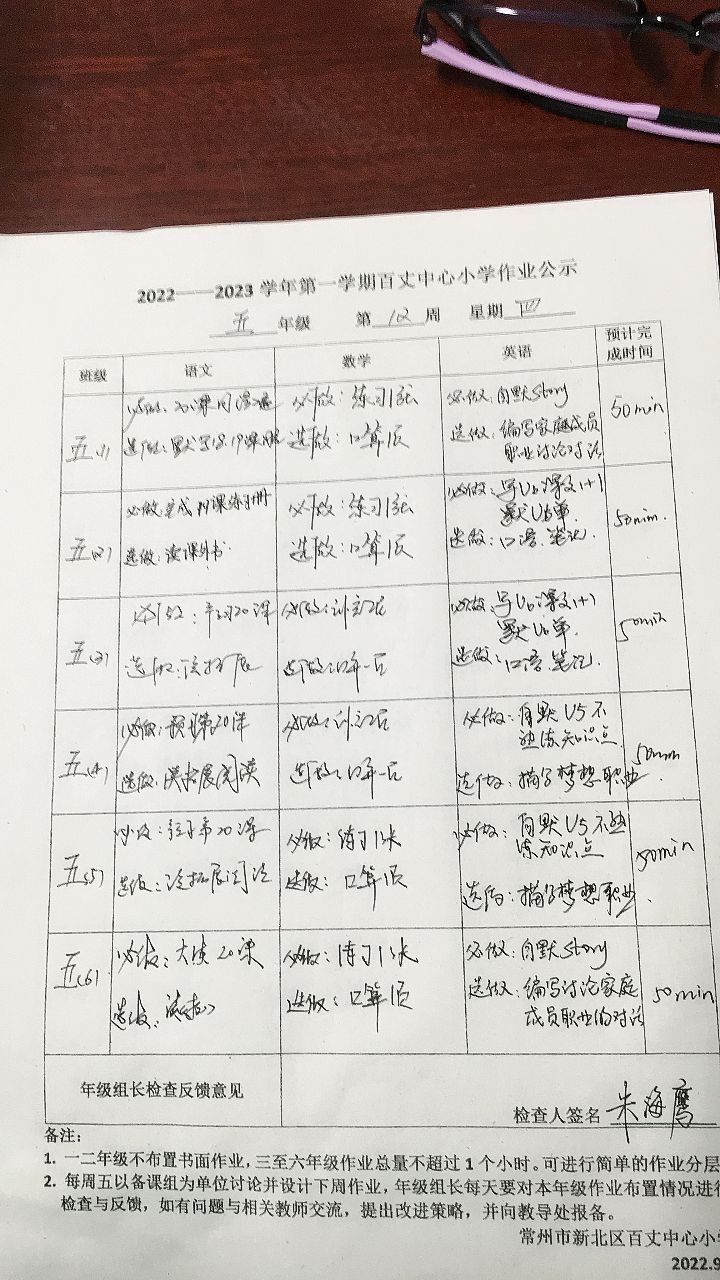 2022——2023 学年第一学期百丈中心小学作业公示
五 年级 第 12 周 星期 四
班级 语文 数学 英语 预计完成时间
五(1)
选做:默写18,19课
必做:练习1张
选做:口算1页
必做:自默Story
选做:编写家庭成员
职业讨论对话
50min
五(2)
必做:完成19课练习册
选做:读课外书
必做:练习1张
选做:口算1页
必做:写U6课文1+1
默U6单.
选做:口语.笔记.
50min.
五(3)
选做:读拓展
必做:写U6课文1+1
默U6单.
选做:口语.笔记.
50min
五(4)
必做:预习第20课
选做:读拓展阅读
必做:自默U5不
熟练知识点
选做:描写梦想职业
50min
五(5)
必做:练习1张
选做:口算1页
必做:自默U5不熟
练知识点
选做:描写梦想职业
50min
五(6)
必做:大练20课
必做:练习1张
选做:口算1页
必做:自默Story
选做:编写讨论家庭
成员职业的对话
50min
年级组长检查反馈意见
检查人签名 朱海鹰
备注:
1. 一二年级不布置书面作业,三至六年级作业总量不超过 1 个小时。可进行简单的作业分层
2. 每周五以备课组为单位讨论并设计下周作业,年级组长每天要对本年级作业布置情况进行
检查与反馈,如有问题与相关教师交流,提出改进策略,并向教导处报备。
常州市新北区百丈中心小学
2022.9